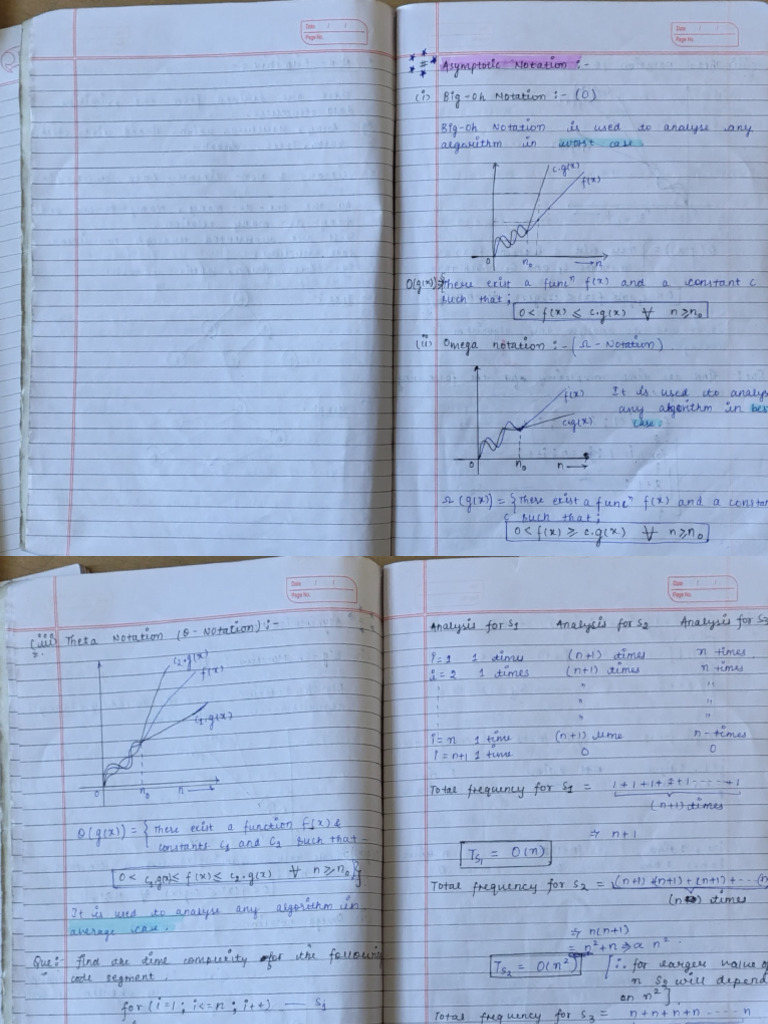 Date / /
Page No.
Date / /
Page No.
Asymptotic Notation :-
(i) Big-Oh Notation :- (O)
Big-Oh Notation is used to analyse any
algorithm in worst case.
c.g(x)
f(x)
0 n₀ → n
O(g(x)) = { There exist a funcⁿ f(x) and a constant c
such that ;
0 < f(x) ≤ c.g(x) ∀ n ≥ n₀
(ii) Omega notation : - (Ω - Notation)
f(x)
c.g(x)
It is used to analyse
any algorithm in best
case.
0 n₀ n →
Ω (g(x)) = { There exist a funcⁿ f(x) and a constan
c such that ;
0 < f(x) ≥ c.g(x) ∀ n ≥ n₀
Date / /
Page No.
(iii) Theta Notation (θ - Notation) :-
c₂.g(x)
f(x)
c₁.g(x)
0 n₀ n →
θ(g(x)) = { There exist a function f(x) &
constants c₁ and c₂ such that -
0 < c₁g(x) ≤ f(x) ≤ c₂.g(x) ∀ n ≥ n₀ }
It is used to analyse any algorithm in
average case.
Que: Find the time complexity of the following
code segment.
for (i=1 ; i<=n ; i++) — S₁
Date / /
Page No.
Analysis for S₁ Analysis for S₂ Analysis for S₃
i = 1 1 times (n+1) times n times
i = 2 1 times (n+1) times n times
" "
" "
" "
i = n 1 time (n+1) time n - times
i = n+1 1 time 0 0
Total frequency for S₁ = 1 + 1 + 1 + 1 + 1 - - - - - + 1
(n+1) times
⇒ n+1
T_S₁ = O(n)
Total frequency for S₂ = (n+1) + (n+1) + (n+1) + - - - (n
(n) times
⇒ n(n+1)
= n² + n ⇒ α n²
T_S₂ = O(n²) [∴ for larger value of
n S₂ will depend
on n²]
Total frequency for S₃ = n + n + n + n - - - - - n